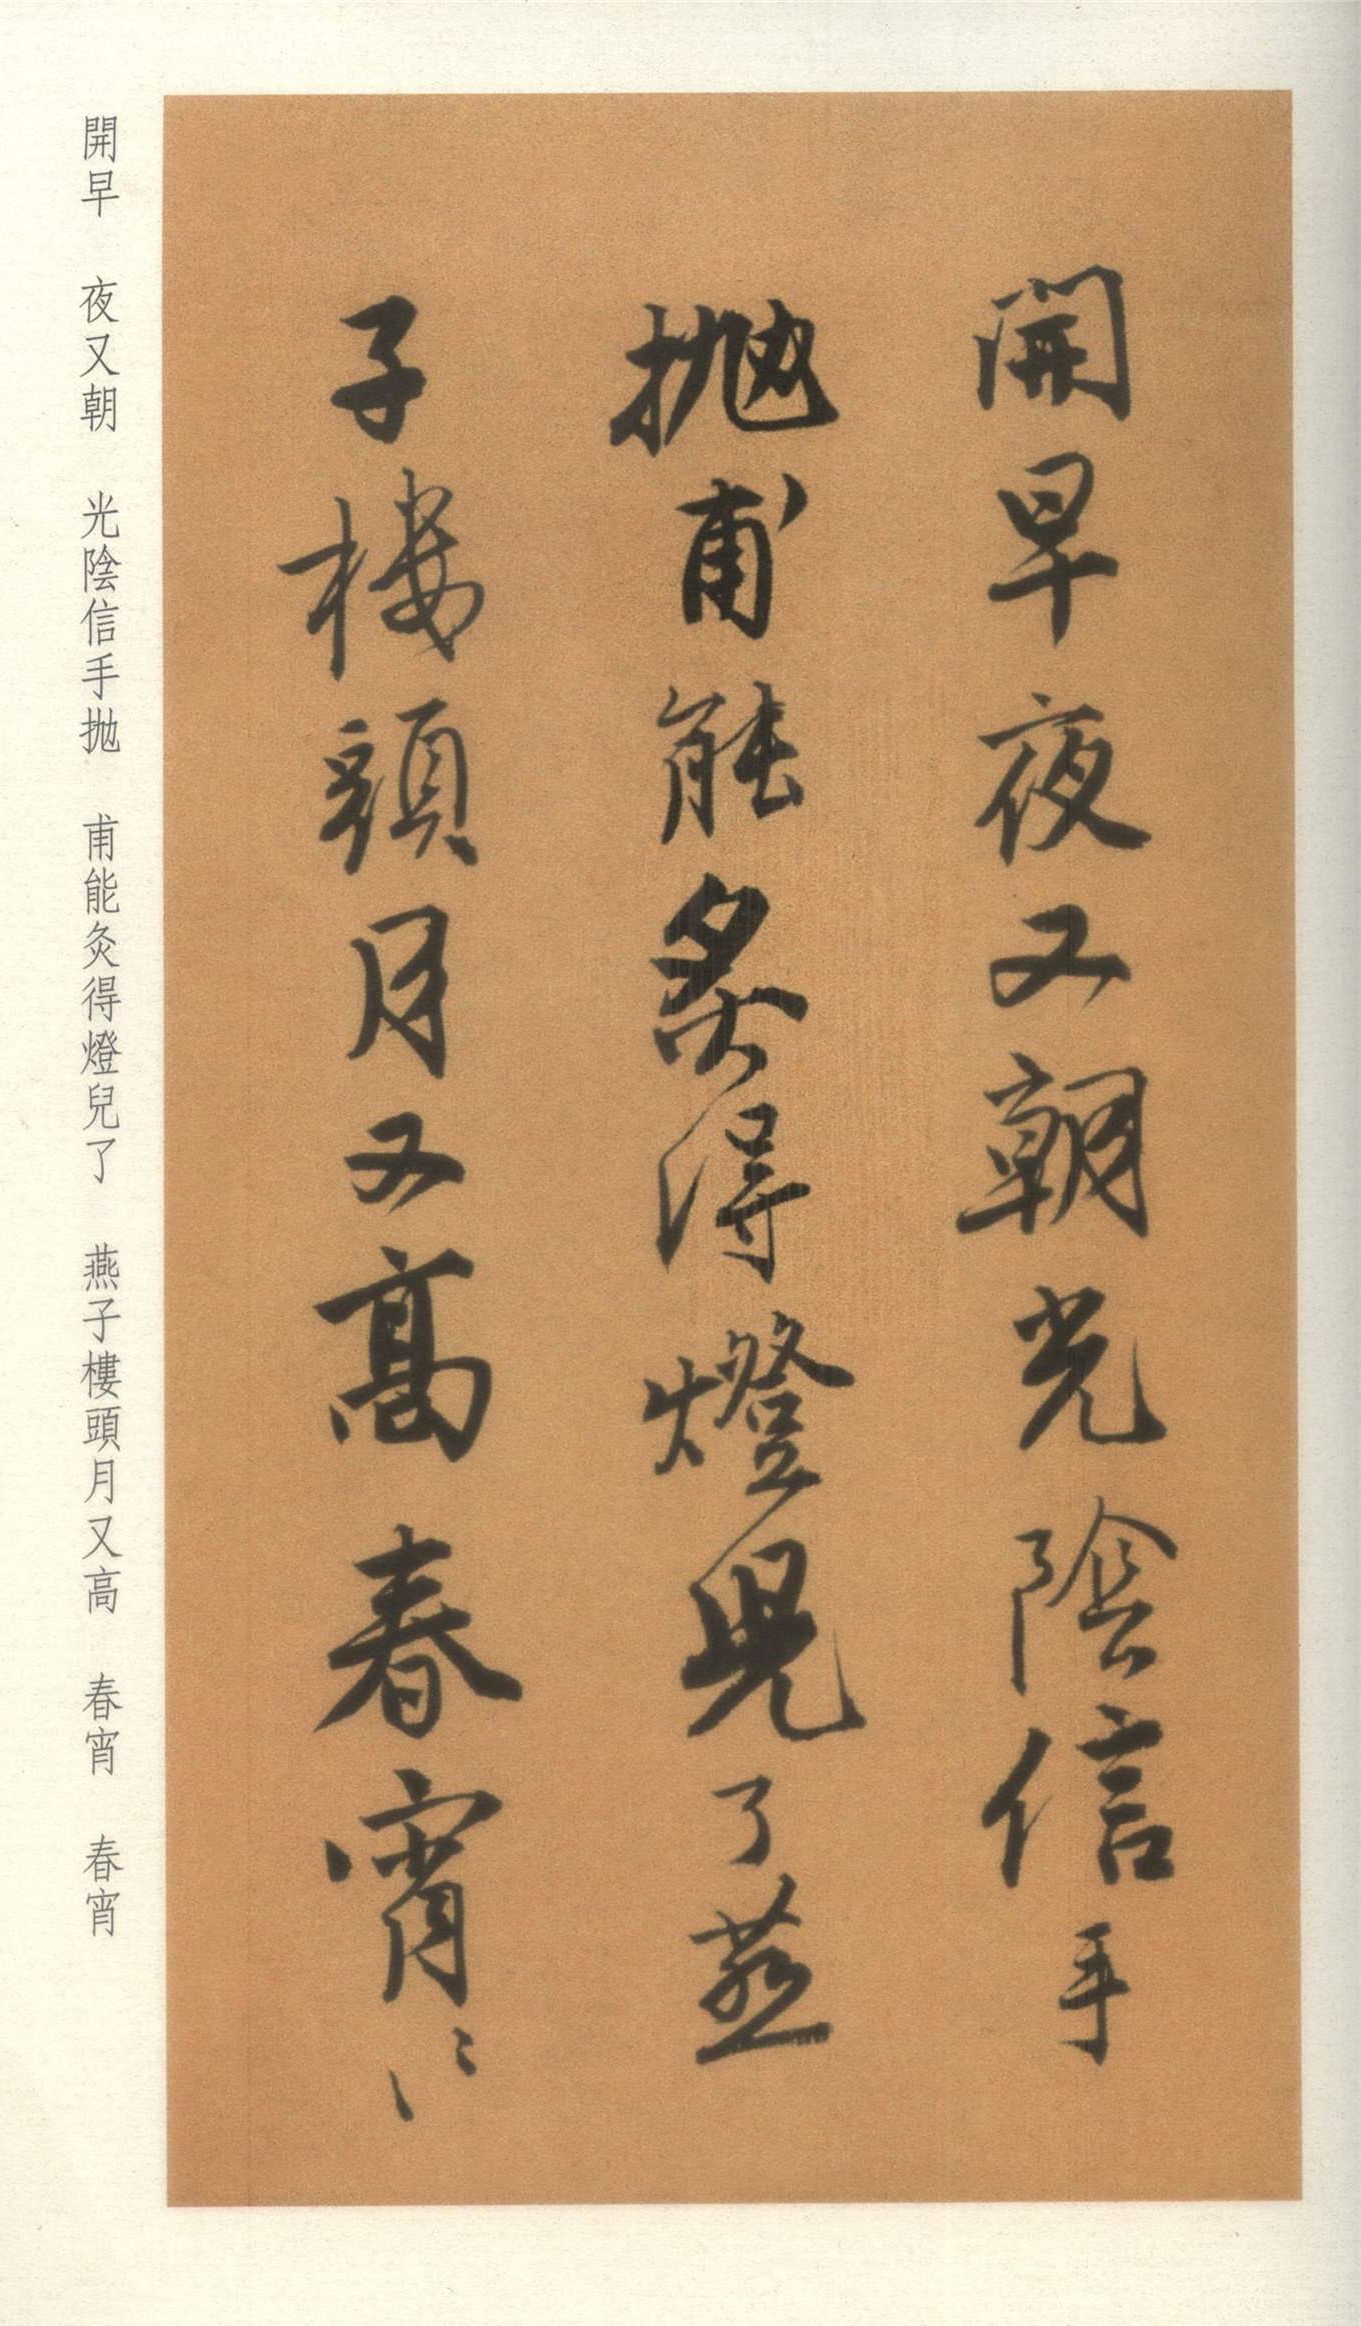 開早夜又朝光陰信手
抛甫能炙得燈兒了燕
子樓頭月又高春宵〻
開早 夜又朝 光陰信手抛 甫能灸得燈兒了 燕子樓頭月又高 春宵 春宵